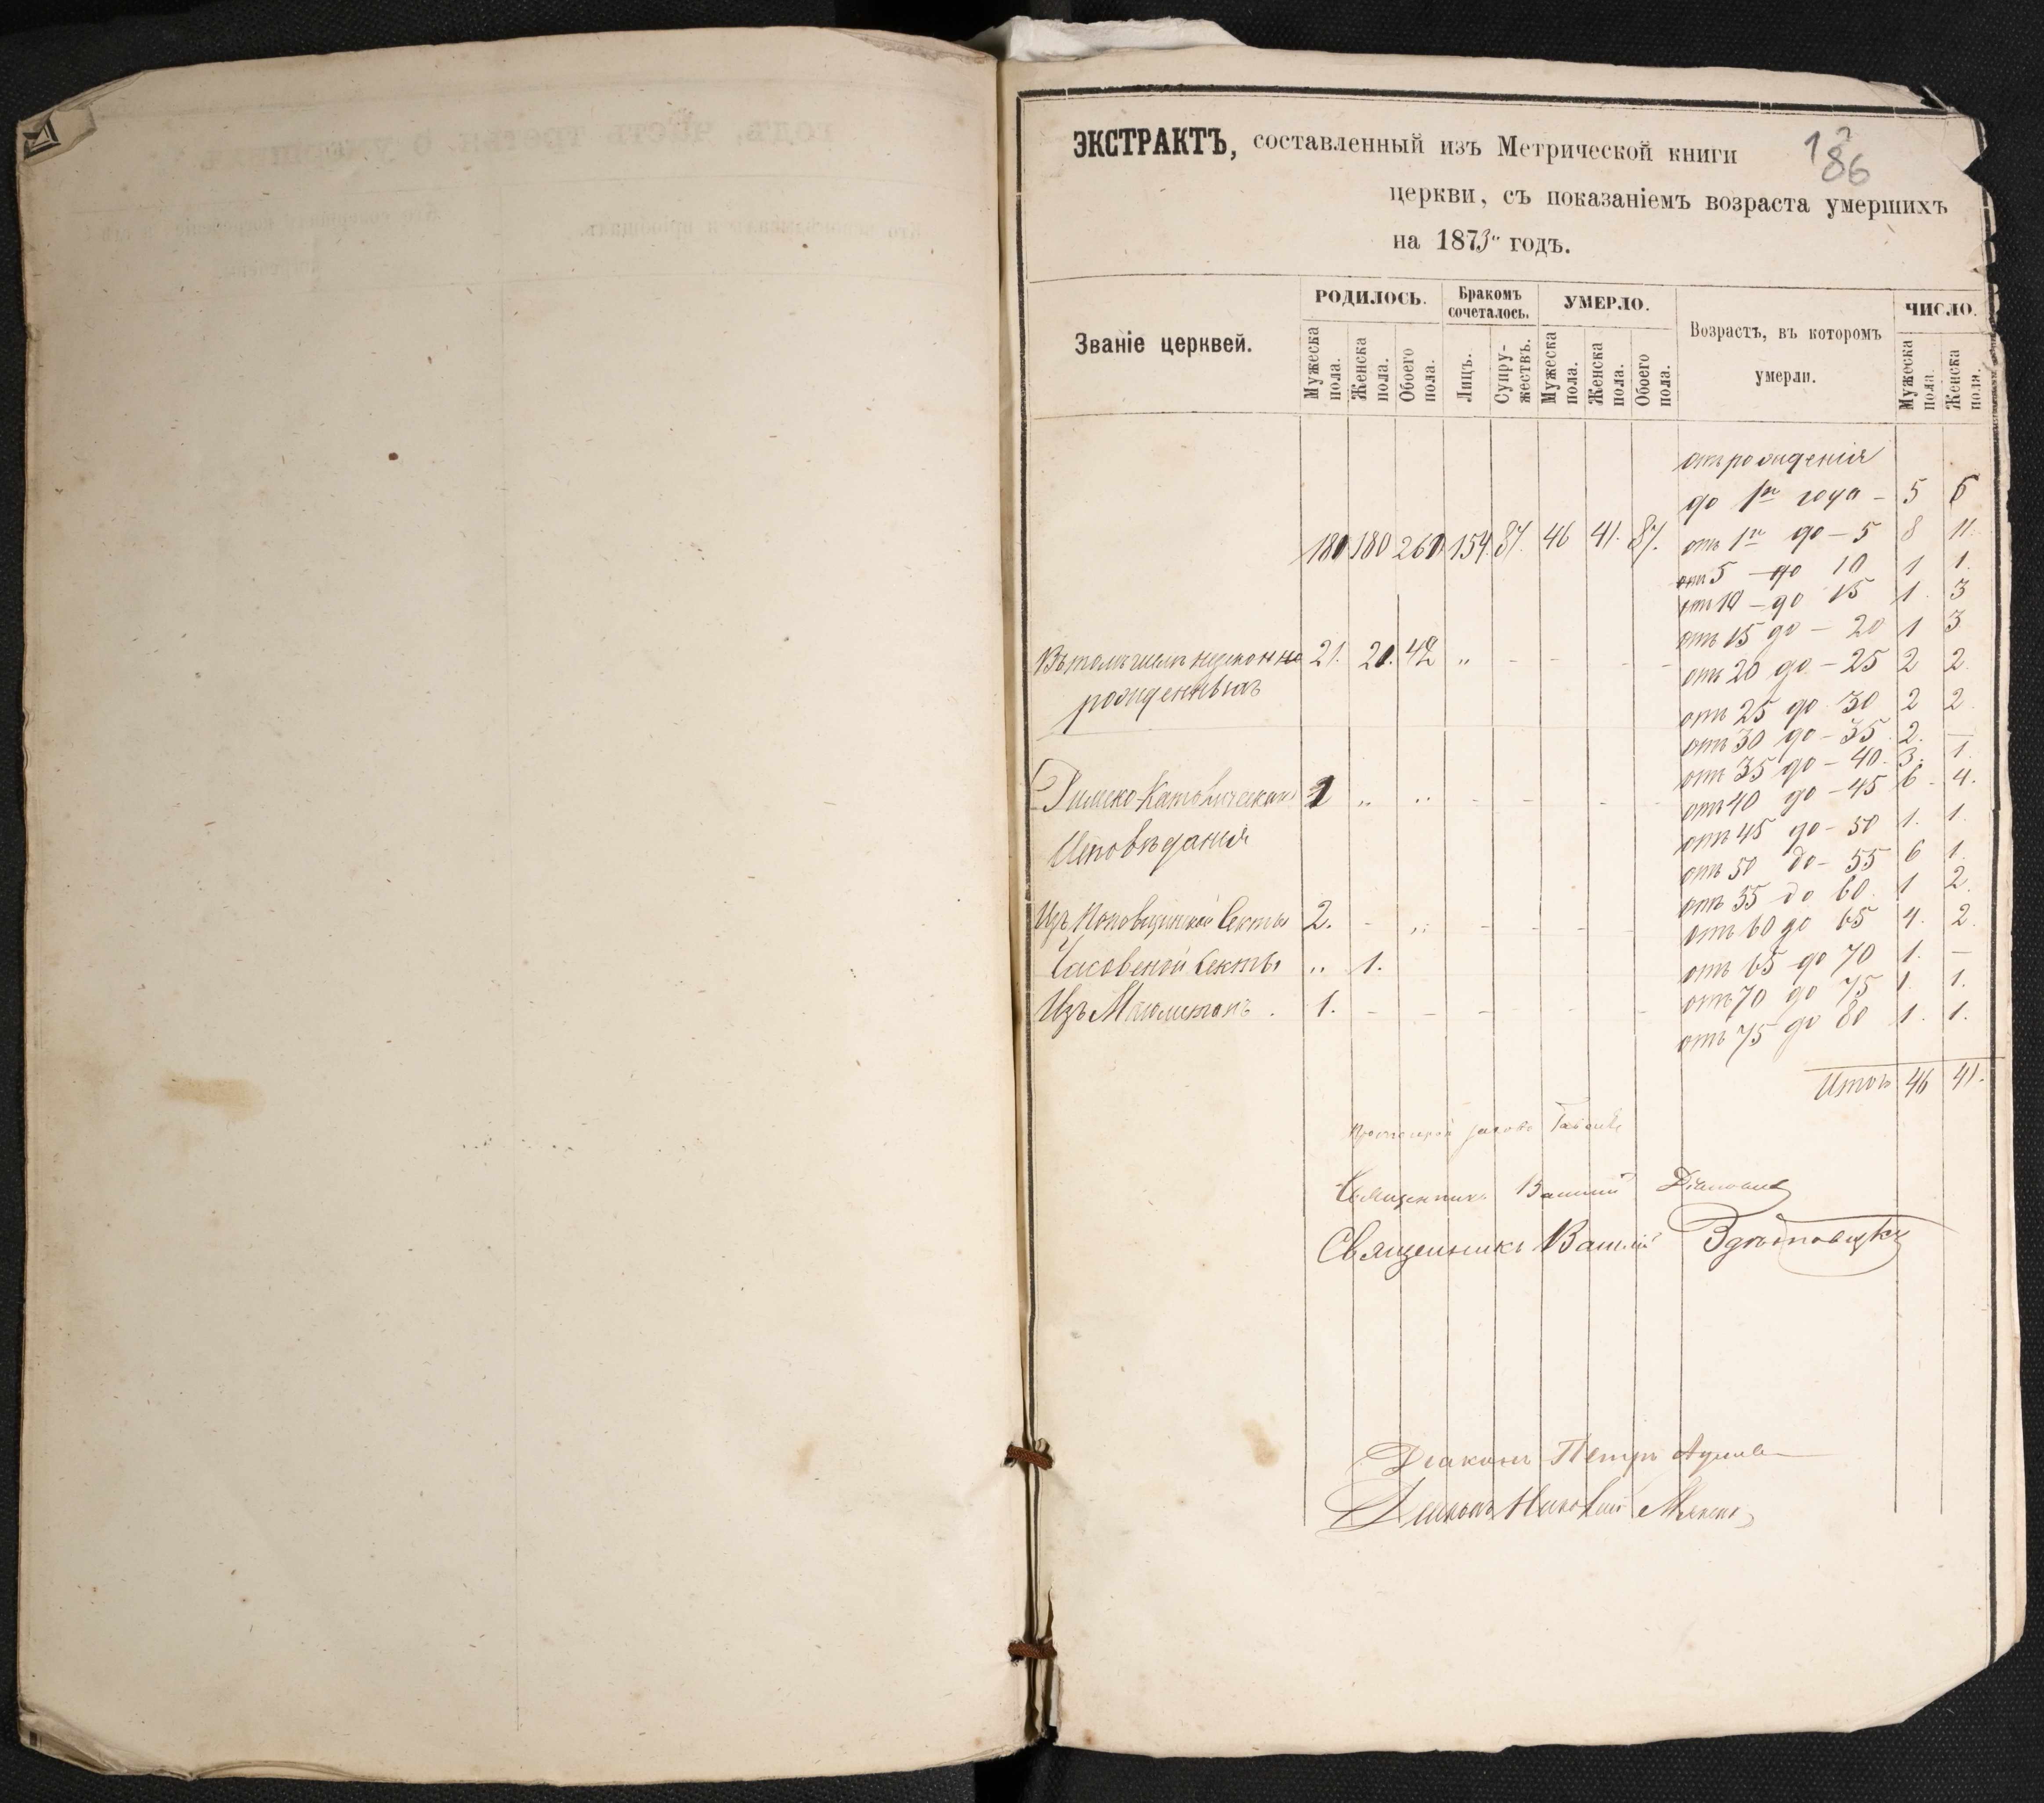 ЭКСТРАКТЪ, составленный изъ Метрической книги
186
церкви, съ показаніемъ возраста умершихъ
на 1873 годъ.
Званіе церквей.
РОДИЛОСЬ.
Мужеска пола.
Женска пола.
Обоего пола.
Бракомъ сочеталось.
Лицъ.
Супружествъ.
УМЕРЛО.
Мужеска пола.
Женска пола.
Обоего пола.
Возрастъ, въ которомъ
умерли.
ЧИСЛО.
Мужеска пола.
Женска пола.
180 180 260 154. 87. 46 41. 87.
Въ томъ числѣ незаконно 21. 20. 42 „ - - -
рожденныхъ
Римско-Католическаго 1 „ „ - - - -
Исповѣданія
Изъ Поповщинской Секты 2. - „ - - - -
Часовеной Секты „ 1.
Изъ 1. - - - - -
отъ рожденія
до 1го года - 5 6
отъ 1го до - 5 8 11.
отъ 5 - до 10 1 1.
отъ 10 - до 15 1. 3
отъ 15 до - 20 1 3
отъ 20 до - 25 2 2.
отъ 25 до 30 2 2
отъ 30 до - 35 2. —
отъ 35 до - 40. 3. 1.
отъ 40 до - 45 6 - 4.
отъ 45 до - 50 1. 1.
отъ 50 до - 55 6 1.
отъ 55 до 60. 1 2.
отъ 60 до 65 4. 2
отъ 65 до 70 1. —
отъ 70 до 75 1. 1.
отъ 75 до 80 1. 1.
Итого 46 41.
Священникъ Василій
Священникъ Василій
Діаконъ Петръ
Діаконъ